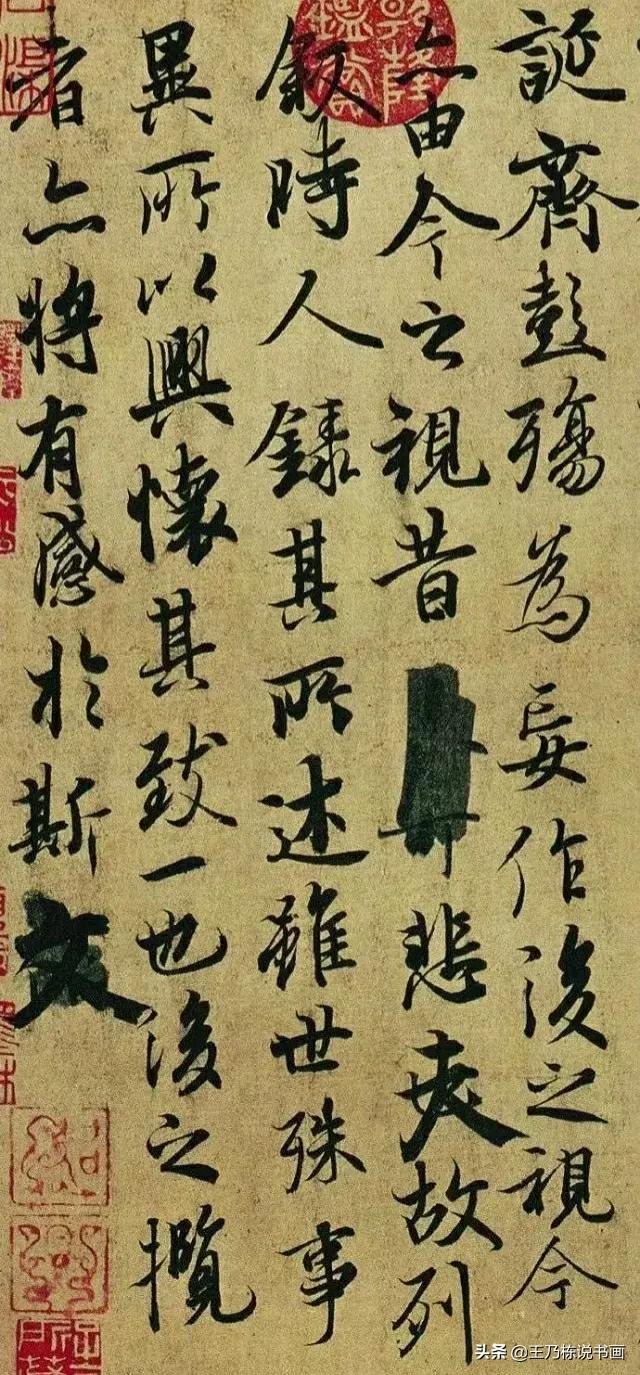 誕齊彭殤為妄作後之視今
亦由今之視昔悲夫故列
敘時人錄其所述雖世殊事
異所以興懷其致一也後之攬
者亦將有感於斯文
乾隆鑑賞
头条 @王乃栋说书画